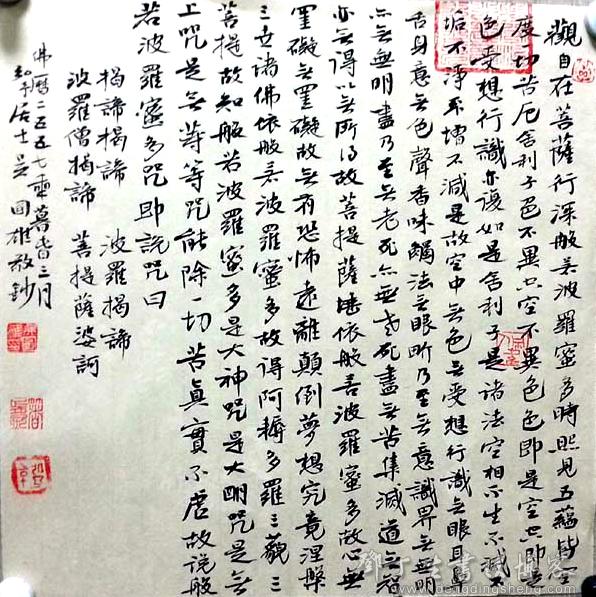 觀自在菩薩行深般若波羅蜜多時照見五蘊皆空
度一切苦厄舍利子色不異空空不異色色即是空空即是
色受想行識亦復如是舍利子是諸法空相不生不滅不
垢不淨不增不減是故空中無色無受想行識無眼耳鼻
舌身意無色聲香味觸法無眼界乃至無意識界無無明
亦無無明盡乃至無老死亦無老死盡無苦集滅道無智
亦無得以無所得故菩提薩埵依般若波羅蜜多故心無
罣礙無罣礙故無有恐怖遠離顛倒夢想究竟涅槃
三世諸佛依般若波羅蜜多故得阿耨多羅三藐三
菩提故知般若波羅蜜多是大神咒是大明咒是無
上咒是無等等咒能除一切苦真實不虛故說般
若波羅蜜多咒即說咒曰
揭諦揭諦 波羅揭諦
波羅僧揭諦 菩提薩婆訶
佛曆二五五七年暮春三月
居士吳國雄敬鈔
博客
www.dengdingsheng.com